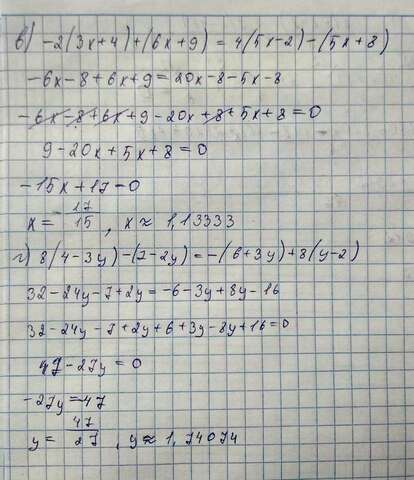 в) -2(3x+4)+(6x+9)=4(5x-2)-(5x+8)
-6x-8+6x+9=20x-8-5x-8
-6x-8+6x+9-20x+8+5x+8=0
9-20x+5x+8=0
-15x+17=0
x=17/15, x≈1,13333
г) 8(4-3y)-(7-2y)=-(6+3y)+8(y-2)
32-24y-7+2y=-6-3y+8y-16
32-24y-7+2y+6+3y-8y+16=0
47-27y=0
-27y=-47
y=47/27, y≈1,74074